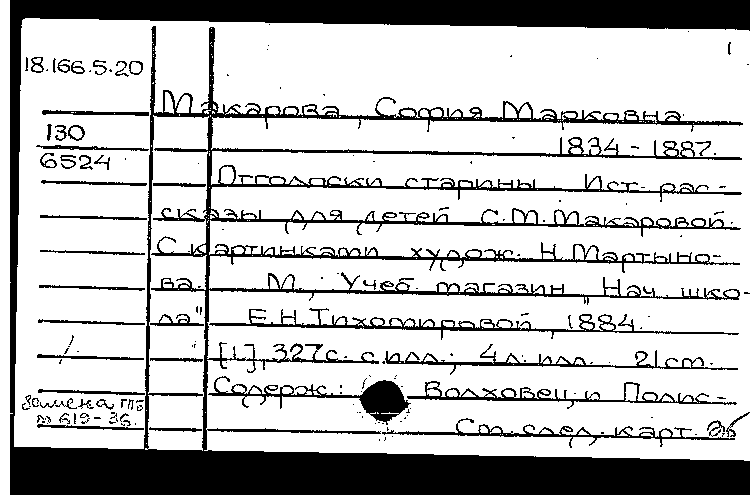 1
18.166.5.20
Макарова, София Марковна,
130
1834-1887.
6524
Отголоски старины. Ист. рас-
сказы для детей С.М.Макаровой.
С картинками худож. Н.Мартыно-
ва. М., Учеб. магазин „Нач. шко-
ла" Е.Н.Тихомировой, 1884.
[1], 327с. с илл.; 4л. илл. 21см.
Содерж.: Волховец и Полис-
Замена ГПБ
№ 619-36.
См. след. карт.